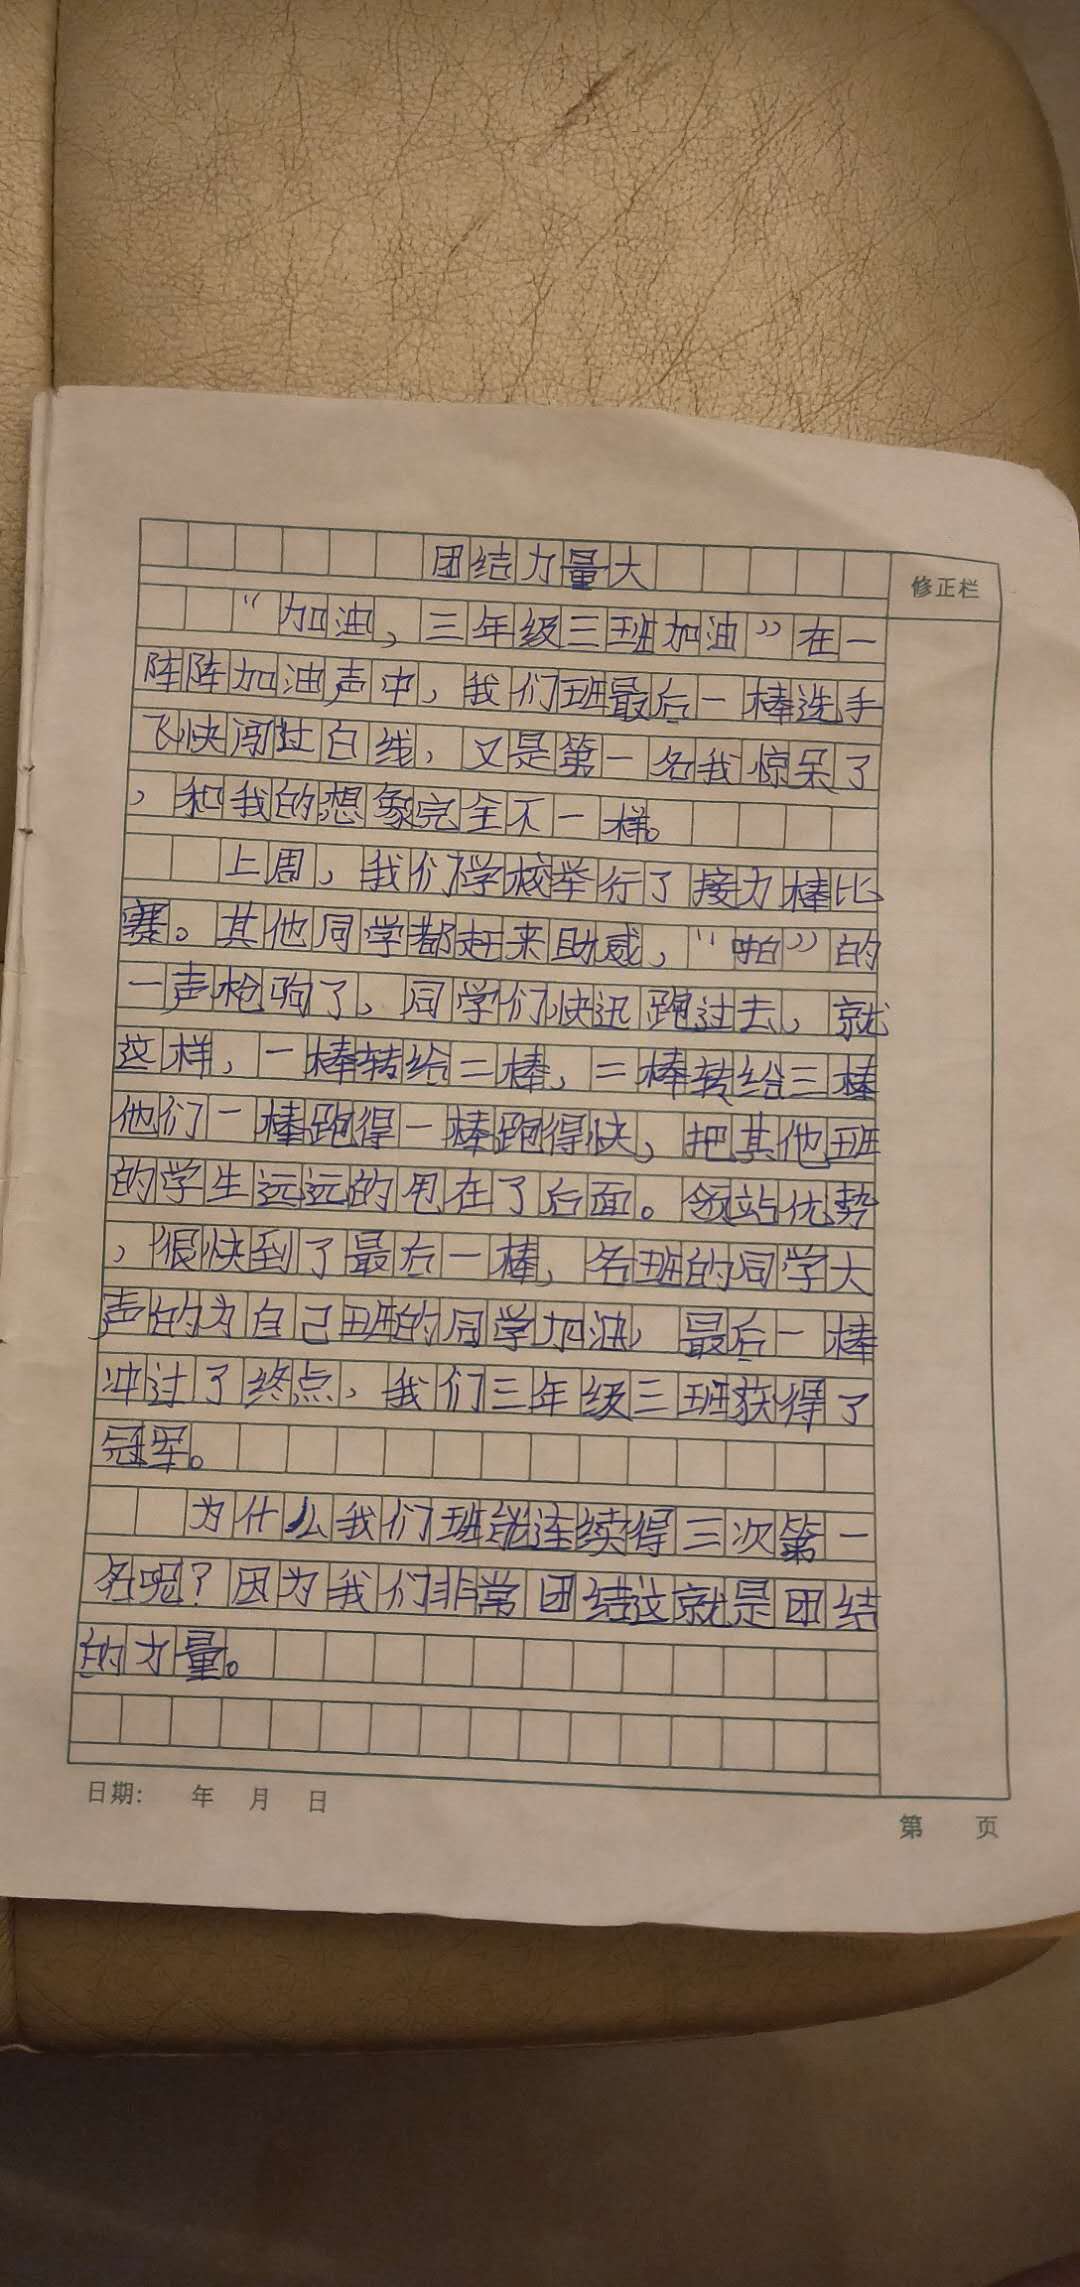 团结力量大
修正栏
“加油，三年级三班加油”在一
阵阵加油声中，我们班最后一棒选手
飞快闯过白线，又是第一名我惊呆了
，和我的想象完全不一样。
上周，我们学校举行了接力棒比
赛。其他同学都赶来助威，“啪”的
一声枪响了，同学们快迅跑过去，就
这样，一棒转给二棒，二棒转给三棒
他们一棒跑得一棒跑得快，把其他班
的学生远远的甩在了后面。领站优势
，很快到了最后一棒，各班的同学大
声的为自己班的同学加油，最后一棒
冲过了终点，我们三年级三班获得了
冠军。
为什么我们班能连续得三次第一
名呢？因为我们非常团结这就是团结
的力量。
日期： 年 月 日
第 页